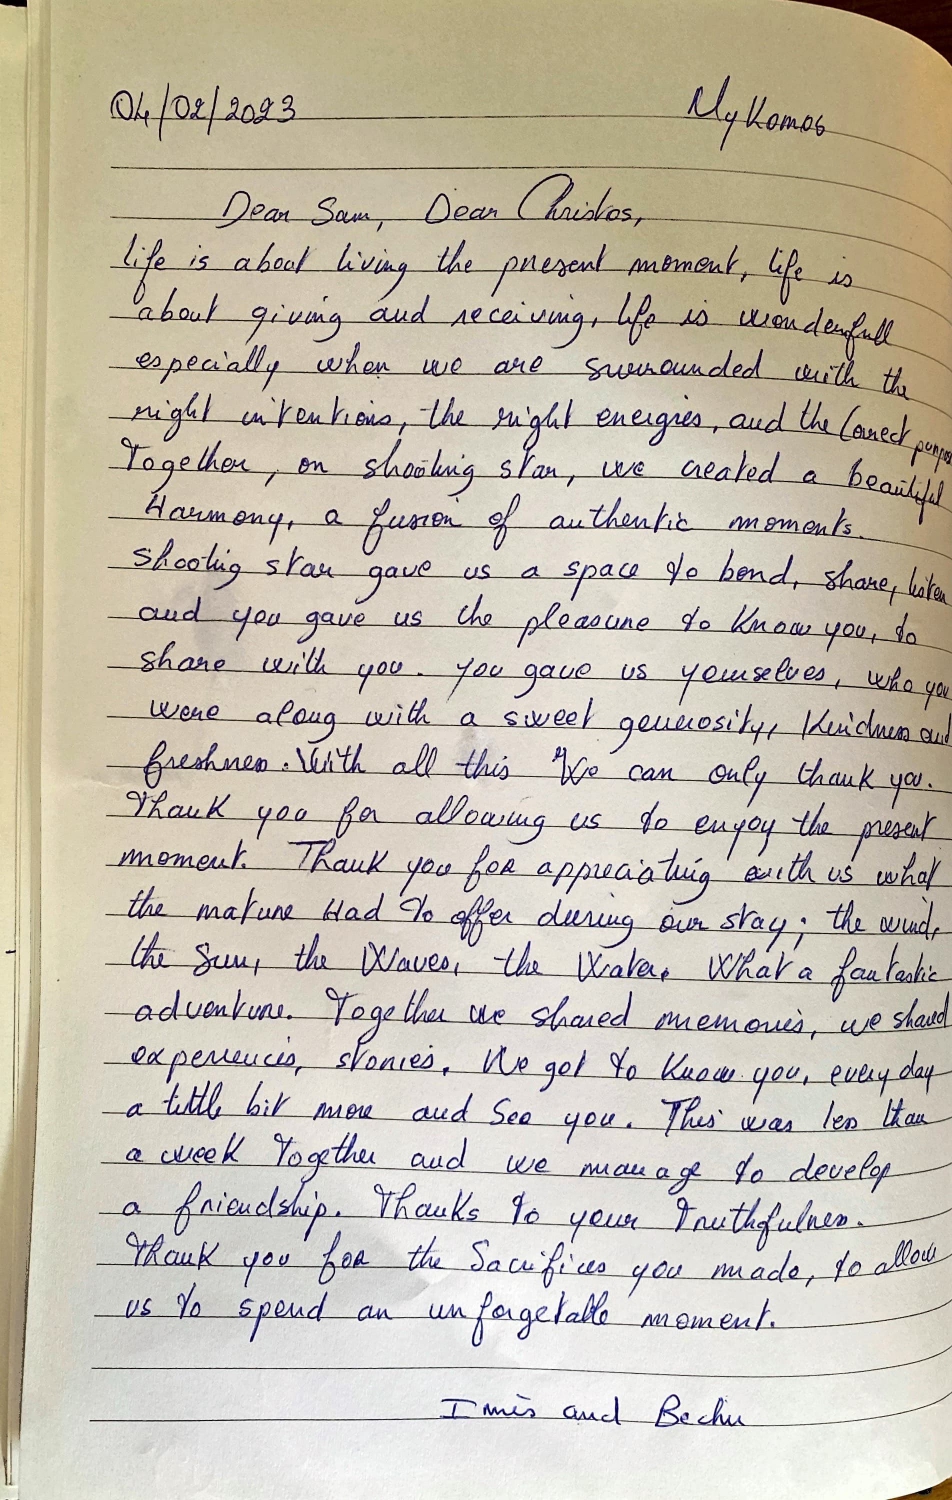 04/02/2023 Mykomos
Dear Sam, Dear Christos,
life is about living the present moment, life is
about giving and receiving, life is wonderfull
especially when we are surrounded with the
right intentions, the right energies, and the Correct purpose
Together, on shooting star, we created a beautiful
Harmony, a fusion of authentic moments.
Shooting star gave us a space to bond, share, listen
and you gave us the pleasure to know you, to
share with you. You gave us yourselves, who you
were along with a sweet generosity, Kindness and
freshness. With all this We can only thank you.
Thank you for allowing us to enjoy the present
moment. Thank you for appreciating with us what
the mature Had to offer during our stay; the wind,
the Sun, the Waves, the Water. What a fantastic
adventure. Together we shared memories, we shared
experiences, stories. We got to Know you, every day
a little bit more and See you. This was less than
a week Together and we manage to develop
a friendship. Thanks to your Truthfulness.
Thank you for the Sacrifices you made, to allow
us to spend an unforgetable moment.
and